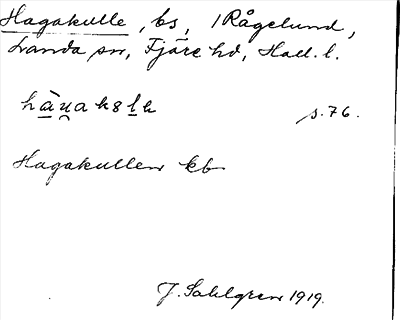 Hagakulle, bs, / Rågelund,
Landa sn, Fjäre hd, Hall. l.
s. 76.
Hagakullen kb
J. Sahlgren 1919.